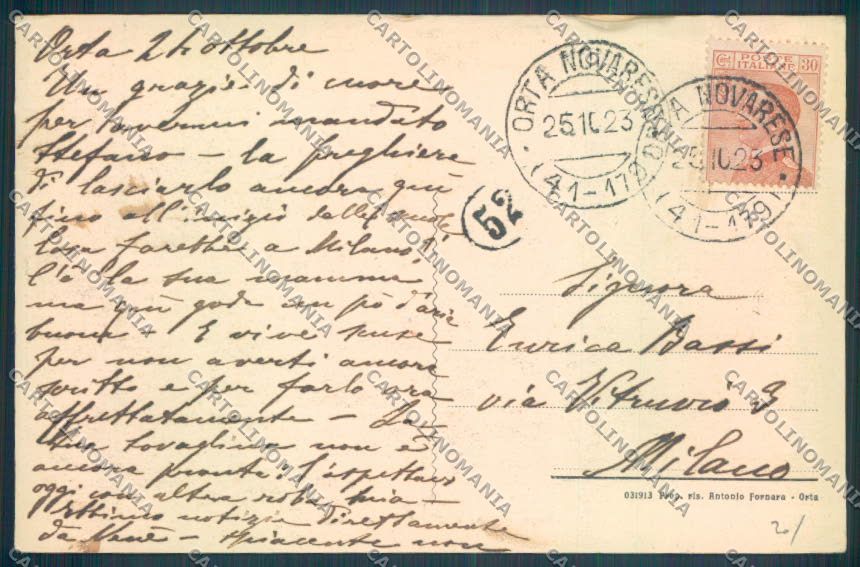 Orta 24 ottobre
Un grazie di cuore
per avermi mandato
Stefano – La preghiere
di lasciarlo ancora quì
fino all'inizio delle scuole
Cosa farebbe a Milano?
C'è la sua mamma
ma quì gode un pò d'aria
buona – E vive scuse
per non averti ancora
scritto e per farlo ora
affrettatamente – La
tua tovaglina non è
ancora pronta: l'aspettavo
oggi con altra roba mia –
notizie direttamente
da – Spiacente non
ORTA NOVARESE
25.10.23
(41-179)
ORTA NOVARESE
25.10.23
(41-179)
POSTE
ITALIANE
Cmi 30
52
Signora
Enrica Bassi
via Vitruvio 3
Milano
031913 Prop. ris. Antonio Fornara - Orta
CARTOLINOMANIA